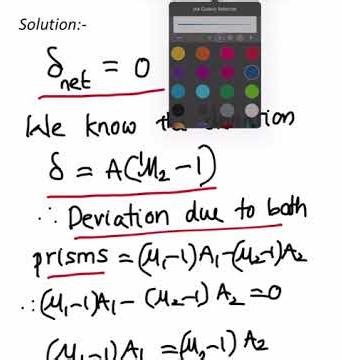 Solution:-
δnet = 0
We know the deviation
δ = A(¹μ₂-1)
∴ Deviation due to both
prisms = (μ₁-1)A₁-(μ₂-1)A₂
∴(μ₁-1)A₁ - (μ₂-1) A₂ = 0
(μ₁-1)A₁ = (μ₂-1) A₂